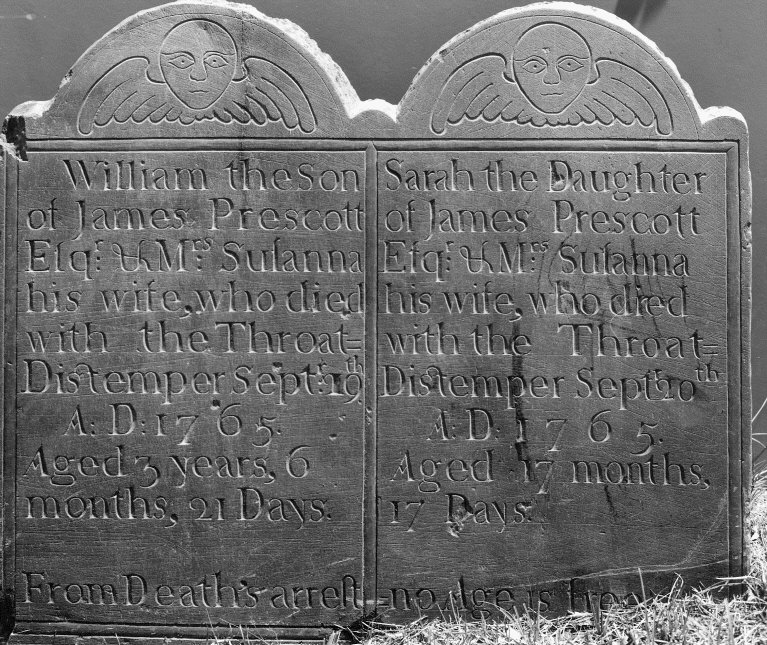 William the Son
of James Prescott
Eſqʳ: & Mʳˢ: Suſanna
his wife, who died
with the Throat=
Diſtemper Septʳ: 19ᵗʰ
A: D: 1765.
Aged 3 years, 6
months, 21 Days.
Sarah the Daughter
of James Prescott
Eſqʳ: & Mʳˢ: Suſanna
his wife, who died
with the Throat=
Diſtemper Septʳ: 20ᵗʰ
A: D: 1765.
Aged 17 months,
17 Days.
From Death's arreſt no Age is free